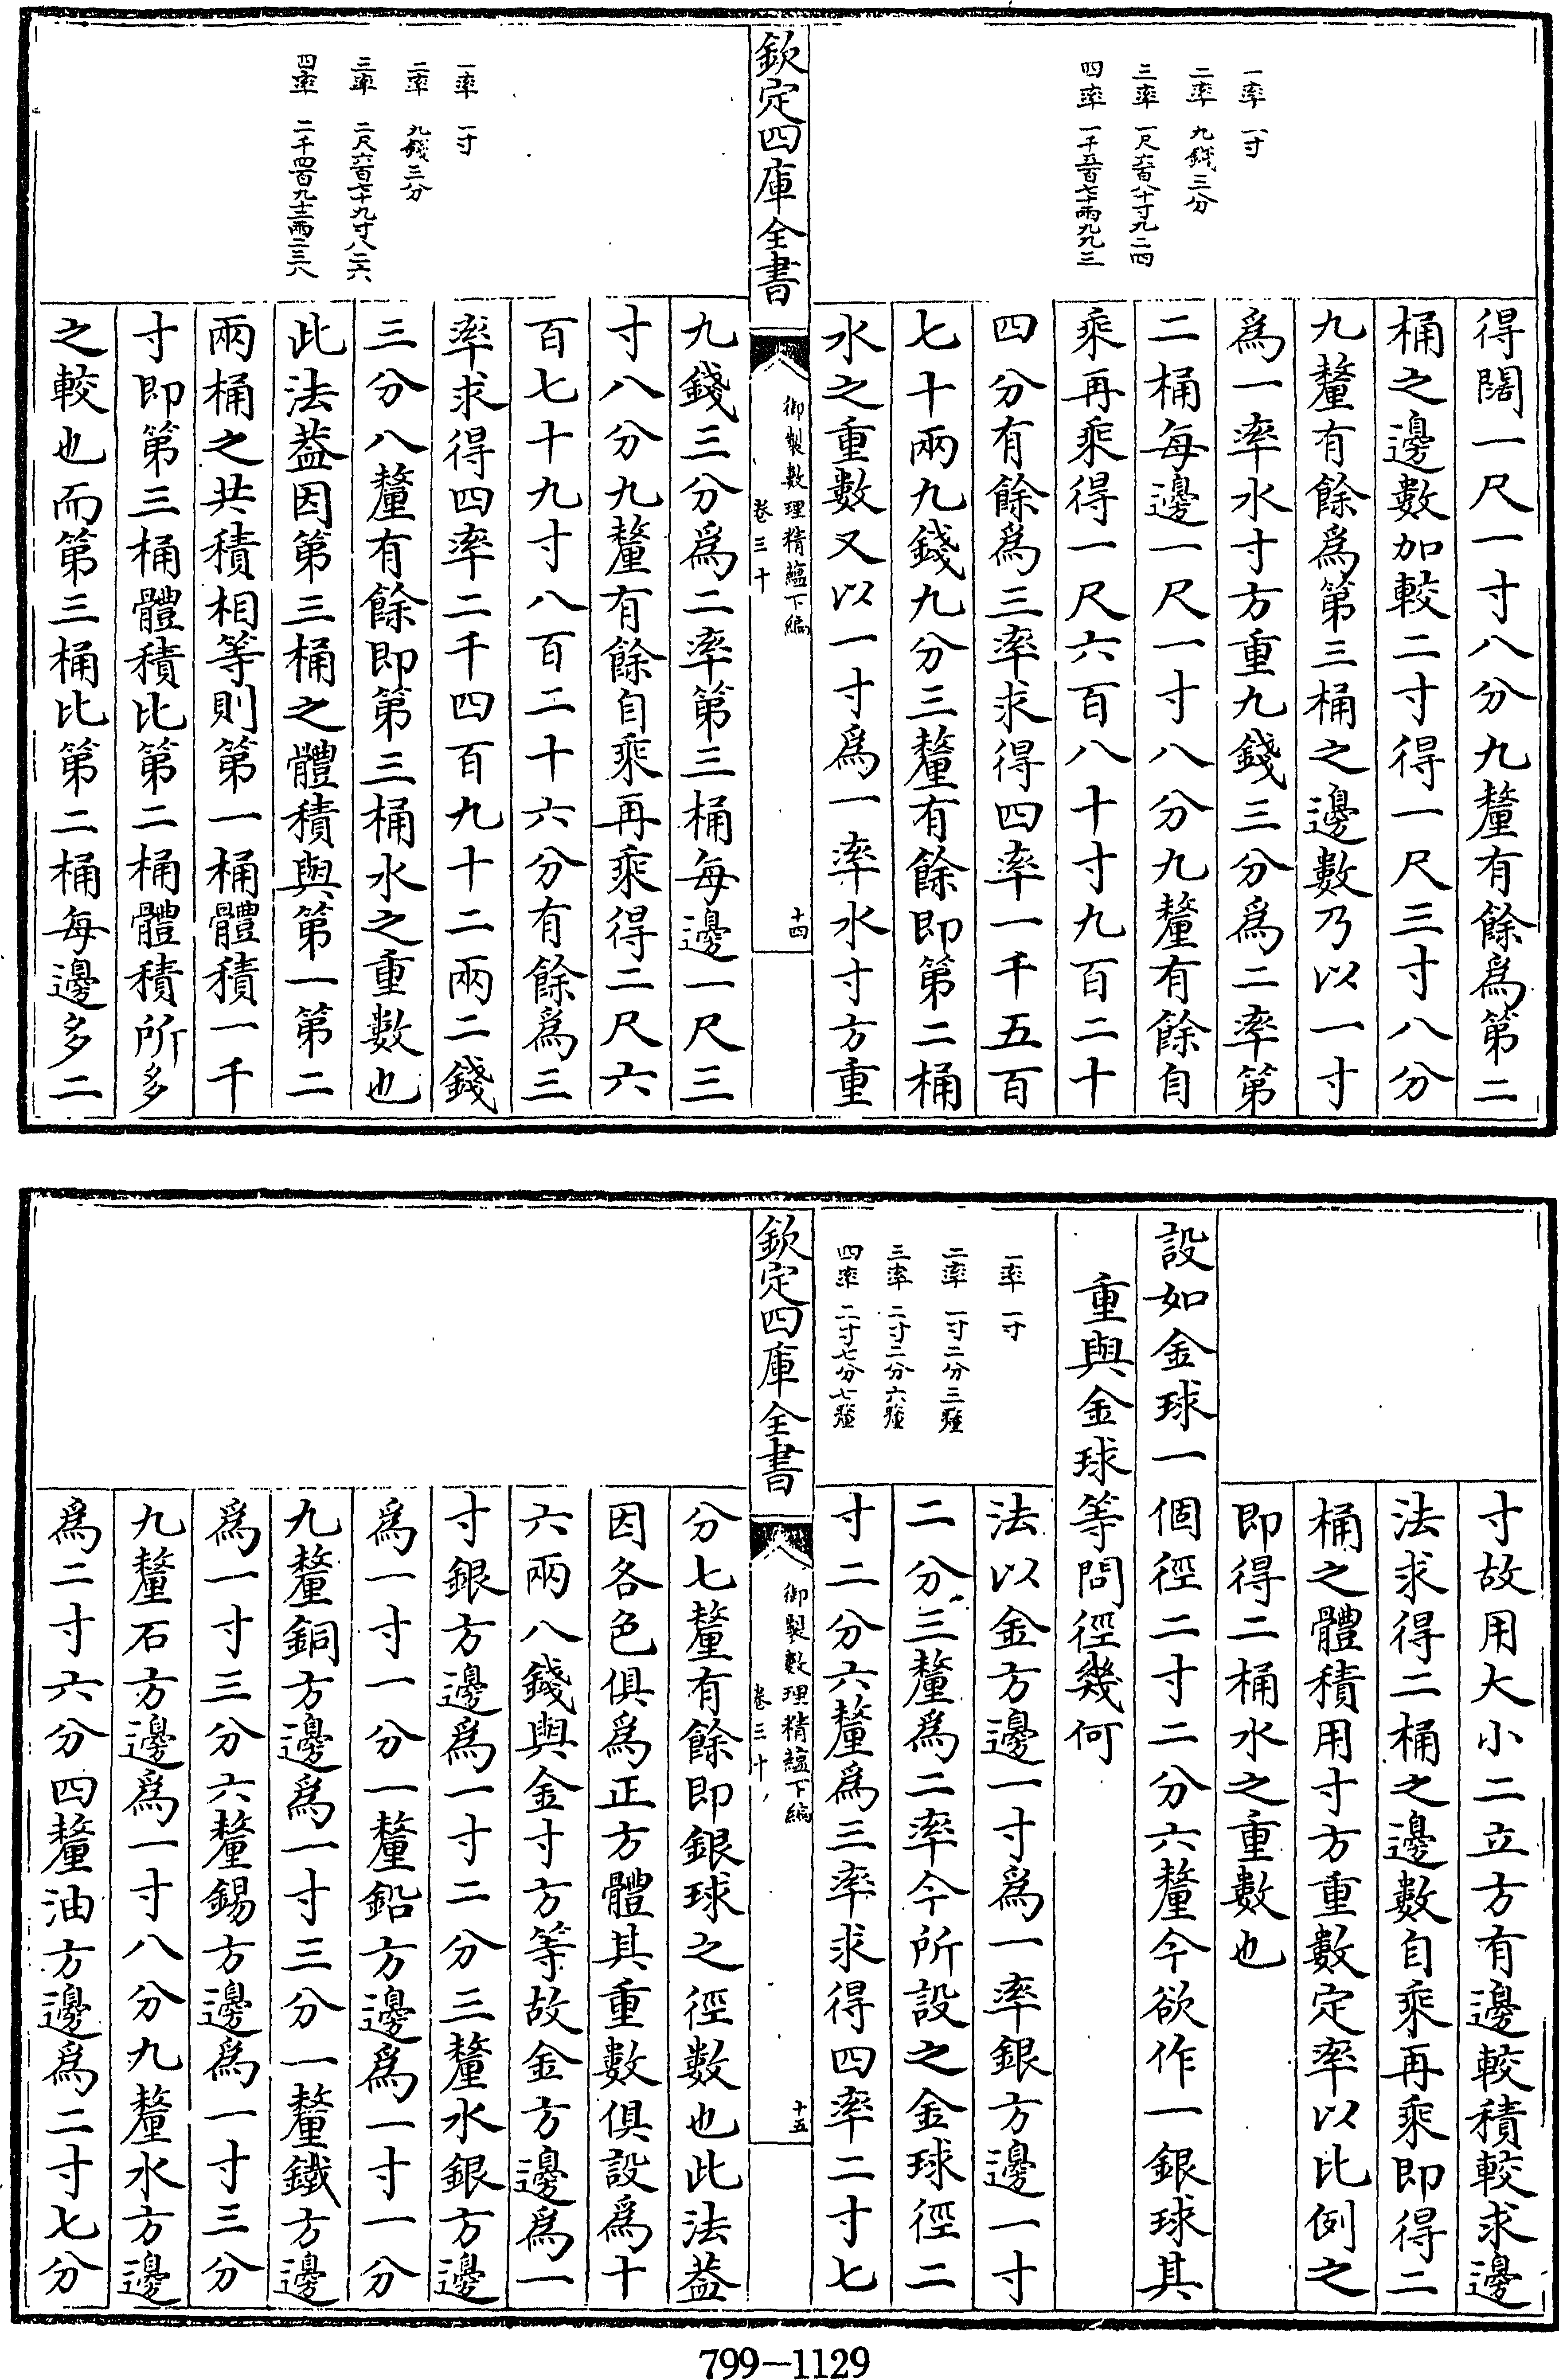 一率　一寸
二率　九錢三分
三率　一尺六百八十寸九二四
四率　一千五百七十兩九九三
得闊一尺一寸八分九釐有餘為第二
桶之邊數加較二寸得一尺三寸八分
九釐有餘為第三桶之邊數乃以一寸
為一率水寸方重九錢三分為二率第
二桶每邊一尺一寸八分九釐有餘自
乘再乘得一尺六百八十寸九百二十
四分有餘為三率求得四率一千五百
七十兩九錢九分三釐有餘即第二桶
水之重數又以一寸為一率水寸方重
欽定四庫全書
御製數理精蘊下編
卷三十
十四
一率　一寸
二率　九錢三分
三率　二尺六百七十九寸八二六
四率　二千四百九十二兩二三八
九錢三分為二率第三桶每邊一尺三
寸八分九釐有餘自乘再乘得二尺六
百七十九寸八百二十六分有餘為三
率求得四率二千四百九十二兩二錢
三分八釐有餘即第三桶水之重數也
此法葢因第三桶之體積與第一第二
兩桶之共積相等則第一桶體積一千
寸即第三桶體積比第二桶體積所多
之較也而第三桶比第二桶每邊多二
寸故用大小二立方有邊較積較求邊
法求得二桶之邊數自乘再乘即得二
桶之體積用寸方重數定率以比例之
即得二桶水之重數也
設如金球一個徑二寸二分六釐今欲作一銀球其
重與金球等問徑幾何
一率　一寸
二率　一寸二分三釐
三率　二寸二分六釐
四率　二寸七分七釐
法以金方邊一寸為一率銀方邊一寸
二分三釐為二率今所設之金球徑二
寸二分六釐為三率求得四率二寸七
欽定四庫全書
御製數理精蘊下編
卷三十
十五
分七釐有餘即銀球之徑數也此法葢
因各色俱為正方體其重數俱設為十
六兩八錢與金寸方等故金方邊為一
寸銀方邊為一寸二分三釐水銀方邊
為一寸一分一釐鉛方邊為一寸一分
九釐銅方邊為一寸三分一釐鐵方邊
為一寸三分六釐錫方邊為一寸三分
九釐石方邊為一寸八分九釐水方邊
為二寸六分四釐油方邊為二寸七分
799-1129